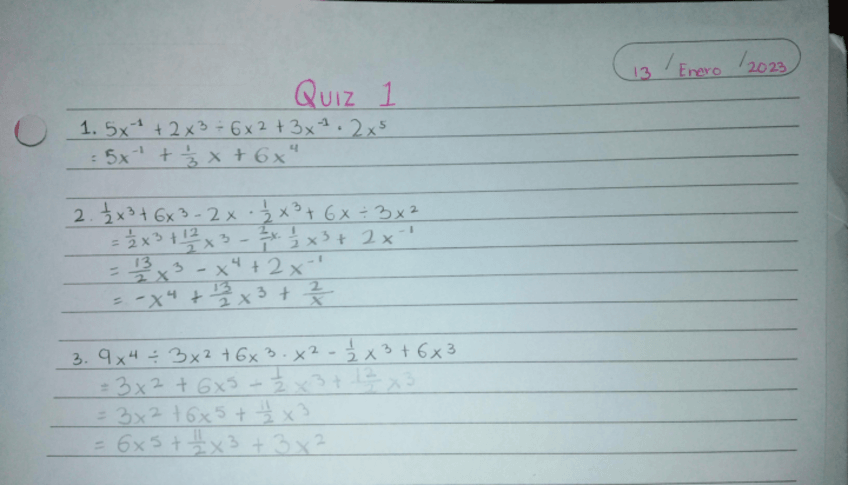 13 / Enero / 2023
Quiz 1
1. 5x⁻¹ + 2x³ ÷ 6x² + 3x⁻¹ · 2x⁵
= 5x⁻¹ + 1/3 x + 6x⁴
2. 1/2 x³ + 6x³ - 2x · 1/2 x³ + 6x ÷ 3x²
= 1/2 x³ + 12/2 x³ - 2/1 x · 1/2 x³ + 2x⁻¹
= 13/2 x³ - x⁴ + 2x⁻¹
= -x⁴ + 13/2 x³ + 2/x
3. 9x⁴ ÷ 3x² + 6x³ · x² - 1/2 x³ + 6x³
= 3x² + 6x⁵ - 1/2 x³ + 12/2 x³
= 3x² + 6x⁵ + 11/2 x³
= 6x⁵ + 11/2 x³ + 3x²